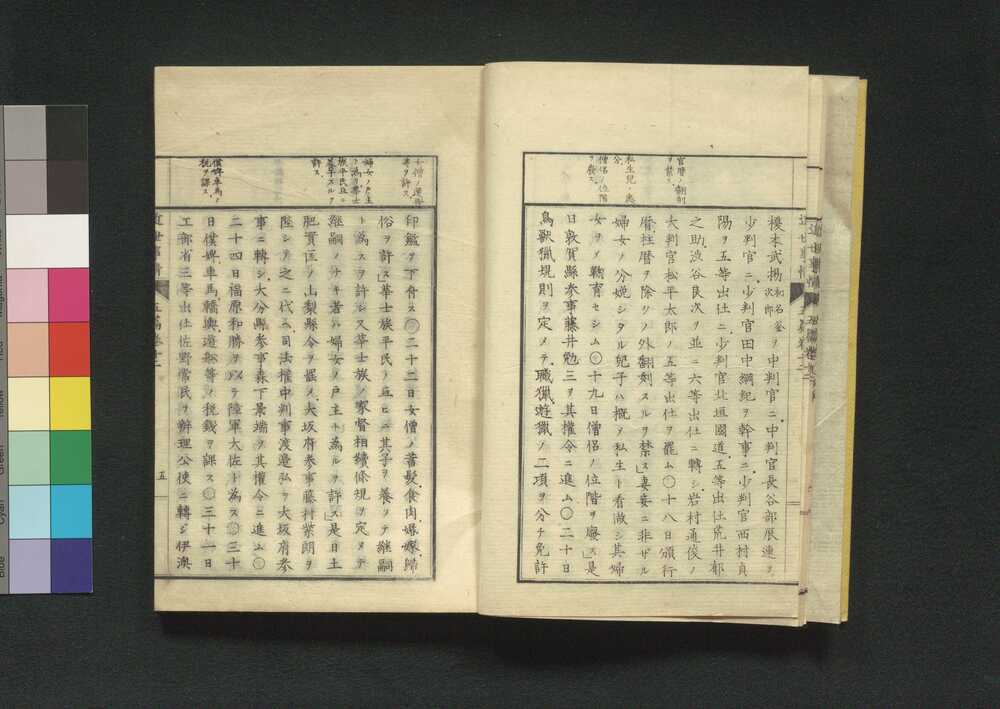 官暦ノ翻刻
ヲ禁ス
私生児ノ
分
僧侶ノ位階
ヲ廃ス
榎本武揚和名釜次郎ヲ中判官ニ中判官長谷部辰連ヲ
少判官ニ少判官田中綱紀ヲ幹事ニ少判官西村貞
陽ヲ五等出仕ニ少判官北垣國道五等出仕荒井郁
之助渋谷良次ヲ並ニ六等出仕ニ轉シ岩村通俊ノ
大判官松平太郎ノ五等出仕ヲ罷ム〇十八日頒行
暦柱暦ヲ除クノ外翻刻スルヲ禁ス」妻妾ニ非サル
婦女ノ分娩シタル兒子ハ概メ私生ト看做シ其婦
女ヲメ鞠育セシム〇十九日僧侶ノ位階ヲ廢ス」是
日敦賀縣参事藤井勉三ヲ其權令ニ進ム〇二十日
鳥獸獵規則ヲ定メテ職獵遊獵ノ二項ヲ分チ免許
女僧ノ蓄髪
等ヲ許ス
婦女ノ戸主
ト為リ華士
族平民互ニ
養子スルヲ
許ス
僕婢車馬ノ
税ヲ課ス
印鑑ヲ下付ス〇二十二日女僧ノ蓄髮食肉婚嫁歸
俗ヲ許ス」華士族平民ノ互ヒニ其子ヲ養フテ繼嗣
ト為スヲ許シ又華士族ノ家督相續條規ヲ定メテ
繼嗣ノ分キ者ハ婦女ノ戸主ト為ルヲ許ス」是日土
肥實匡ノ山梨縣令ヲ罷メ大坂府参事藤村紫朗ヲ
陞シテ之ニ代ヘ司法權中判事渡邉弘ヲ大坂府参
事ニ轉シ大分縣参事森下景端ヲ其權令ニ進ム〇
二十四日福原和勝ヲメテ陸軍大佐ト為ス〇三十
日僕婢車馬轎輿遊船等ノ税錢ヲ課ス〇三十一日
工部省三等出仕佐野常民ヲ辨理公使ニ轉シ伊澳
近世事情
五編巻十二
五